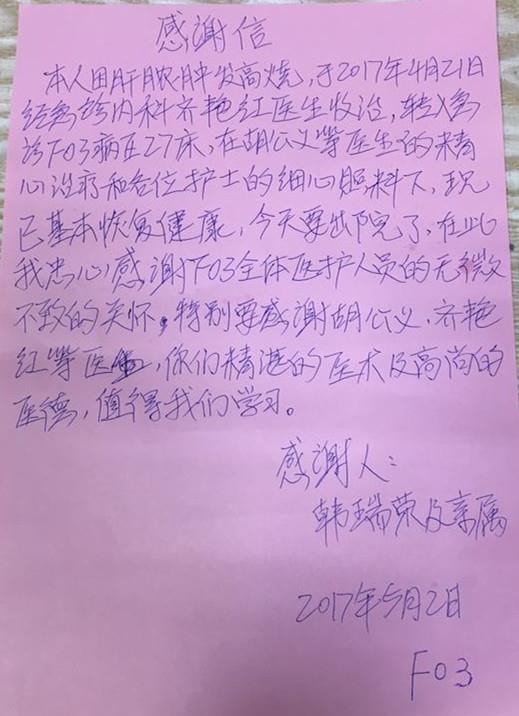 感谢信
本人因肝脓肿发高烧，于2017年4月21日
经急诊内科齐艳红医生收治，转入急
诊F03病区27床，在胡公义等医生的精
心治疗和各位护士的细心照料下，现
已基本恢复健康，今天要出院了，在此
我忠心感谢F03全体医护人员的无微
不致的关怀。特别要感谢胡公义、齐艳
红等医生，你们精湛的医术及高尚的
医德，值得我们学习。
感谢人：
韩瑞荣及亲属
2017年5月2日
F03